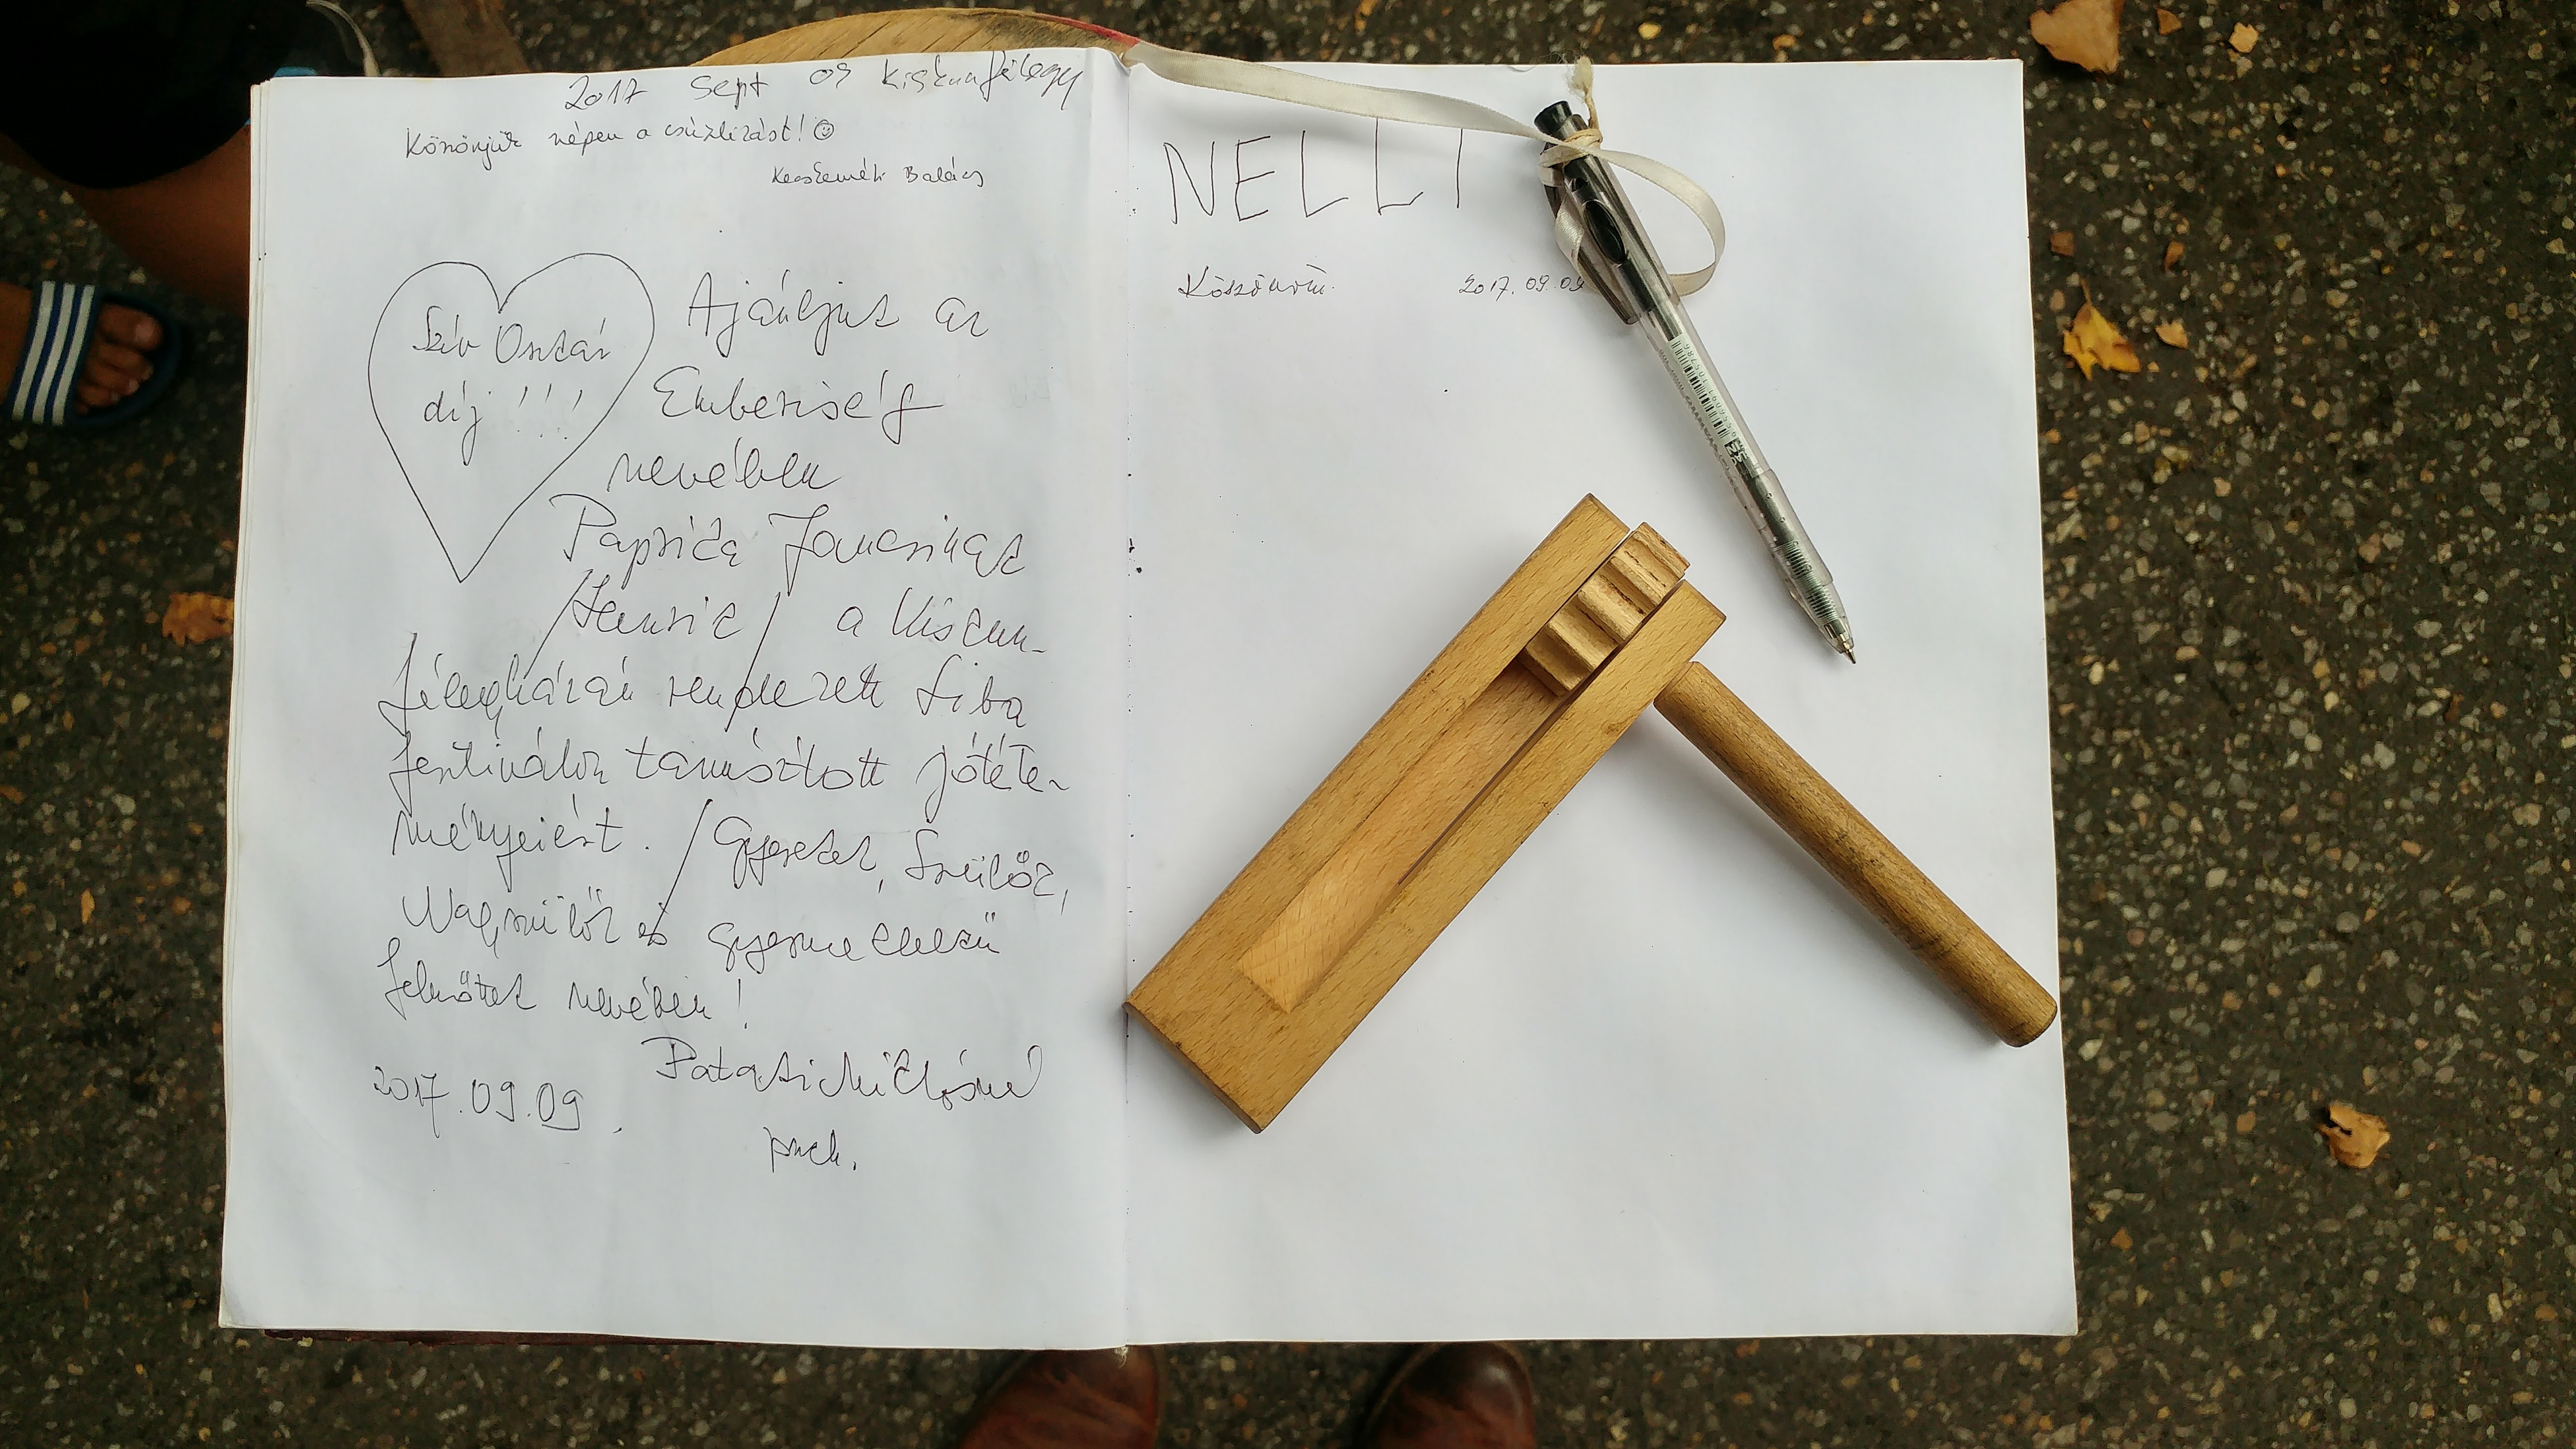 2017 Sept 09 Kiskunfélegy
Köszönjük szépen a csúzlizást! ☺
Kecskeméti Balázs
Szív Oszkár
díj!!!
Ajánljuk az
Emberiség
nevében
Paprika Jancsinak
/Henrik/ a Kiskun-
félegyházán rendezett Liba
fesztiválon tanúsított jótéte-
ményeiért. /Gyerekek, Szülők,
Nagyszülők és gyermeklelkű
felnőttek nevében!
Pataki Miklósné
2017.09.09.
NELLI
Köszönöm. 2017.09.09